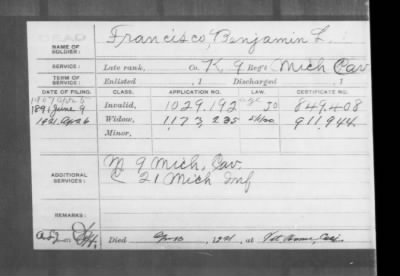 DEAD
NAME OF SOLDIER: Francisco, Benjamin L.
SERVICE: Late rank, Co. K 9 Reg't Mich Cav
TERM OF SERVICE: Enlisted , 1 Discharged , 1
DATE OF FILING. CLASS. APPLICATION NO. LAW. CERTIFICATE NO.
1891 June 9 Invalid, 1029,192 849.408
1921. Apr 26 Widow, 1,173,235 911,944
Minor,
ADDITIONAL SERVICES: M 9 Mich. Cav.
C 21 Mich Inf
REMARKS:
Died , 1921, at Home, Cal.